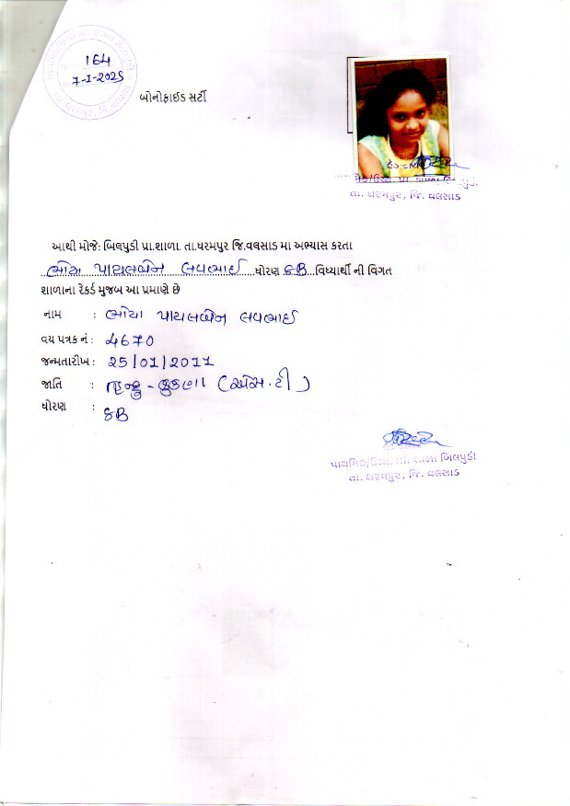 164
7-1-2025
બોનોફાઈડ સર્ટી
તા. ધરમપુર, જિ. વલસાડ
આથી મોજે: બિલપુડી પ્રા.શાળા. તા.ધરમપુર જિ.વલસાડ મા અભ્યાસ કરતા
ભોયા પાયલબેન લવભાઈ ધોરણ ૮B વિધ્યાર્થી ની વિગત
શાળાના રેકર્ડ મુજબ આ પ્રમાણે છે
નામ : ભોયા પાયલબેન લવભાઈ
વય પત્રક નં : 4670
જન્મતારીખ : 25/01/2011
જાતિ : હિન્દુ - કુકણા (એસ.ટી)
ધોરણ : ૮B
પ્રા. શાળા બિલપુડી
તા. ધરમપુર, જિ. વલસાડ